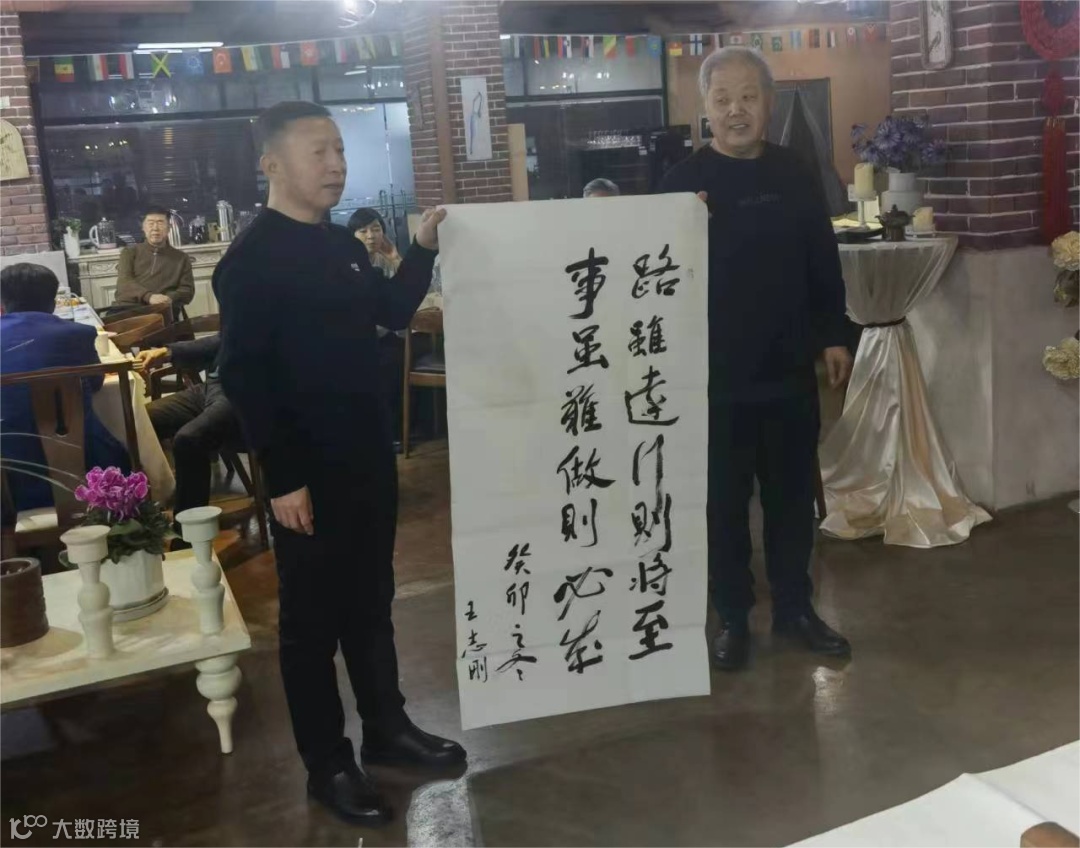 路雖遠行則將至
事虽難做則必成
癸卯之冬
王志刚
大数跨境